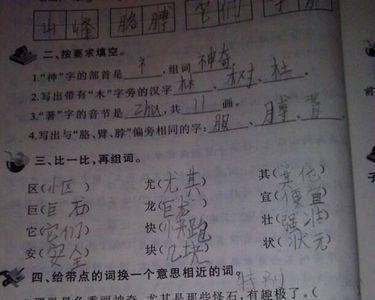 山 峰 胳 膊 它 们
二、按要求填空。
1.“神”字的部首是 礻 ,组词 神奇
2.写出带有“木”字旁的汉字 林、树、柱
3.“著”字的音节是 zhù ,共 11 画。
4.写出与“胳、臂、脖”偏旁相同的字: 胆、膊、背
三、比一比,再组词。
区(小区) 尤(尤其) 其(其他)
巨(巨石) 龙(巨龙) 宜(便宜)
它(它们) 快(快跑) 壮(强壮)
安(安全) 块(几块) 状(状元)
四、给带点的词换一个意思相近的词。
特别
尤其是那些怪石,有趣极了。(